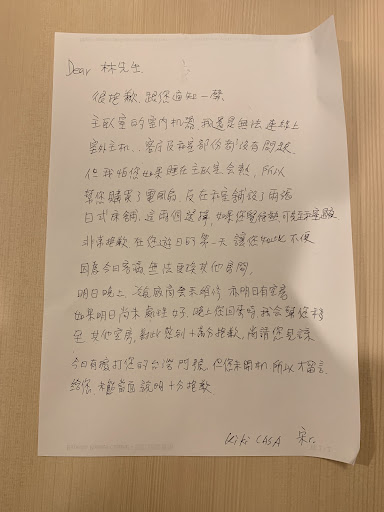 Dear 林先生
很抱歉,跟您通知一聲
主臥室的室內机器,頻道是無法連線上
室外主机,客房及和室部份都沒有問題
但我怕您如果睡在主臥室會熱,所以
幫您購買了電風扇,及在和室鋪設了兩張
日式床鋪,這兩個選擇,如果您覺悶熱可至和室
非常抱歉在您遊日的第一天讓您如此不便
因為今日客滿無法更換其他房間,
明日晚上,冷氣廠商會來維修,亦明日有空房
如果明日尚未處理好,晚上您回來時,我會幫您移
至其他空房,對此感到十萬分抱歉,尚請您見諒
今日有撥打您的台灣門號,但您未開机,所以才留言
給您,未能當面說明十分抱歉
KiKi CASA 宋r.